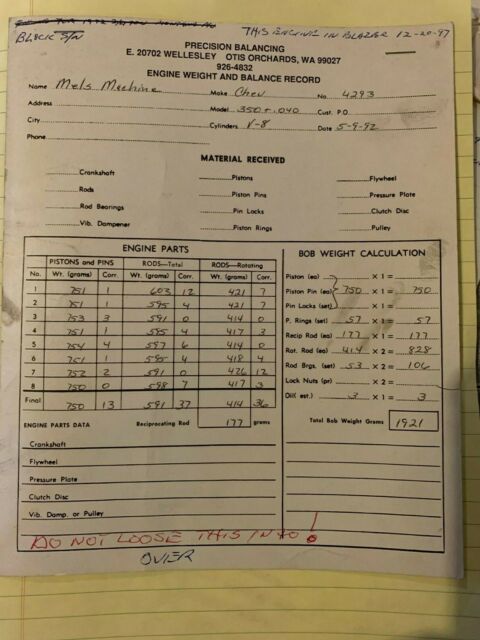 BLOCK S/N
THIS ENGINE IN BLAZER 12-20-97
PRECISION BALANCING
E. 20702 WELLESLEY OTIS ORCHARDS, WA 99027
926-4832
ENGINE WEIGHT AND BALANCE RECORD
Name Mels Machine Make Chev No. 4293
Address Model 350 + .040 Cust. P.O.
City Cylinders V-8 Date 5-9-92
Phone
MATERIAL RECEIVED
Crankshaft Pistons Flywheel
Rods Piston Pins Pressure Plate
Rod Bearings Pin Locks Clutch Disc
Vib. Dampener Piston Rings Pulley
ENGINE PARTS BOB WEIGHT CALCULATION
PISTONS and PINS RODS—Total RODS—Rotating
No. Wt. (grams) Corr. Wt. (grams) Corr. Wt. (grams) Corr.
1 751 1 603 12 421 7
2 751 1 595 4 421 7
3 753 3 591 0 414 0
4 751 1 595 4 417 3
5 754 4 597 6 414 0
6 751 1 595 4 418 4
7 752 2 591 0 426 12
8 750 0 598 7 417 3
Final 750 13 591 37 414 36
Piston (ea) × 1 =
Piston Pin (ea) 750 × 1 = 750
Pin Locks (set) × 1 =
P. Rings (set) 57 × 1 = 57
Recip Rod (ea) 177 × 1 = 177
Rot. Rod (ea) 414 × 2 = 828
Rod Brgs. (set) 53 × 2 = 106
Lock Nuts (pr) × 2 =
Oil (est.) 3 × 1 = 3
Total Bob Weight Grams 1921
ENGINE PARTS DATA Reciprocating Rod 177 grams
Crankshaft
Flywheel
Pressure Plate
Clutch Disc
Vib. Damp. or Pulley
DO NOT LOOSE THIS INFO!
OVER